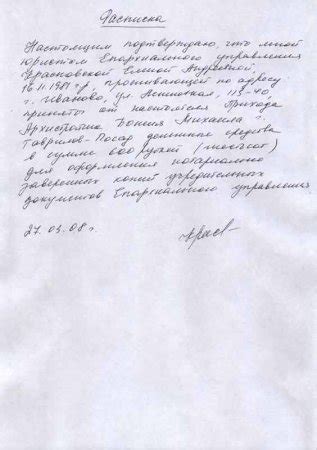 Расписка
Настоящим подтверждаю, что мной
юристом Епархиального управления
Красковской Еленой Андреевной
16.11.1981 г.р., проживающей по адресу
г. Иваново, ул. 113-40
принято от настоятеля Прихода
Архистратига Божия Михаила г.
Гаврилов-Посад денежные средства
в сумме 600 рублей (шестьсот)
для оформления нотариально
заверенных копий учредительных
документов Епархиального управления
27.03.08 г.